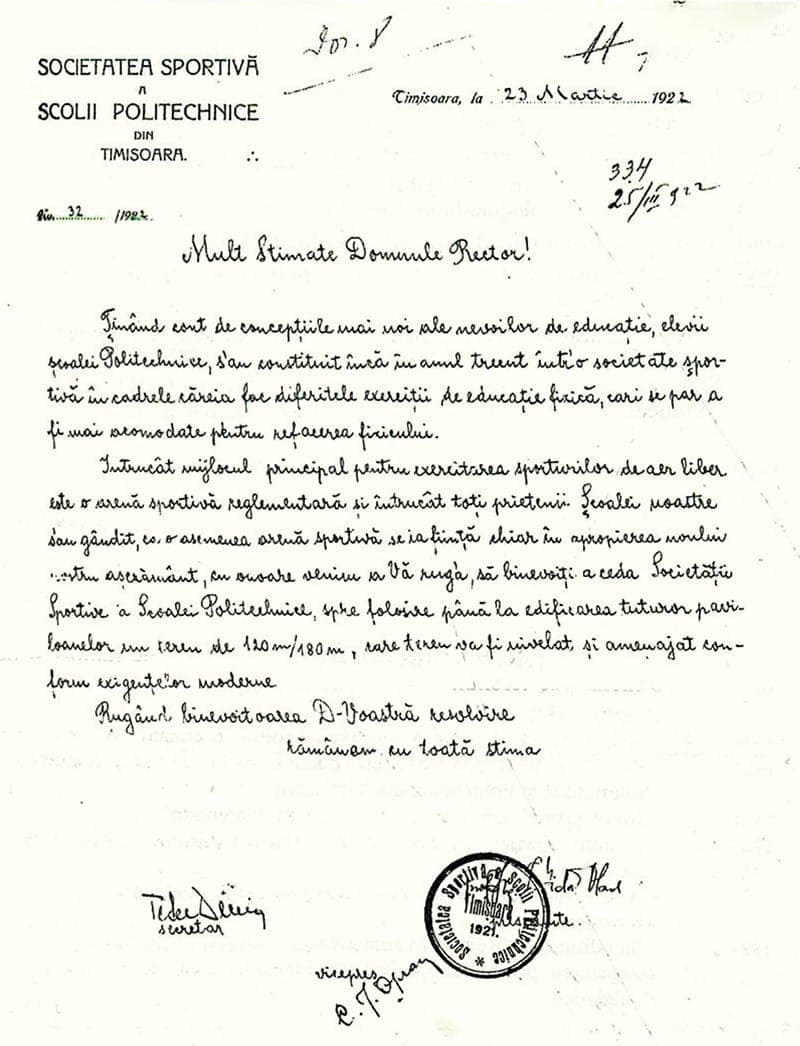 Dos. 8
11
SOCIETATEA SPORTIVĂ
A
SCOLII POLITECHNICE
DIN
TIMISOARA.
Timișoara, la 23 Martie 1922
334
25/III 922
No. 32 /1922.
Mult Stimate Domnule Rector!
Ținând cont de concepțiile mai noi ale nevoilor de educație, elevii
școalei Politechnice, s'au constituit încă în anul trecut într'o societate spor-
tivă în cadrele căreia fac diferitele exerciții de educație fizică, cari se par a
fi mai acomodate pentru refacerea fizicului.
Intrucât mijlocul principal pentru exercitarea sporturilor de aer liber
este o arenă sportivă reglementară și întrucât toți prietenii Școalei noastre
s'au gândit, ca o asemenea arenă sportivă se ia ființă chiar în apropierea noului
nostru așezământ, cu onoare venim a Vă ruga, să binevoiți a ceda Societății
Sportive a Școalei Politechnice, spre folosire până la edificarea tuturor pavi-
loanelor un teren de 120m/180m, care teren va fi nivelat și amenajat con-
form exigențelor moderne
Rugând binevoitoarea D-Voastră rezolvire
rămânem cu toată stima
secretar
Societatea Sportivă a Școlii Politechnice
Timișoara
1921.
vicepres.